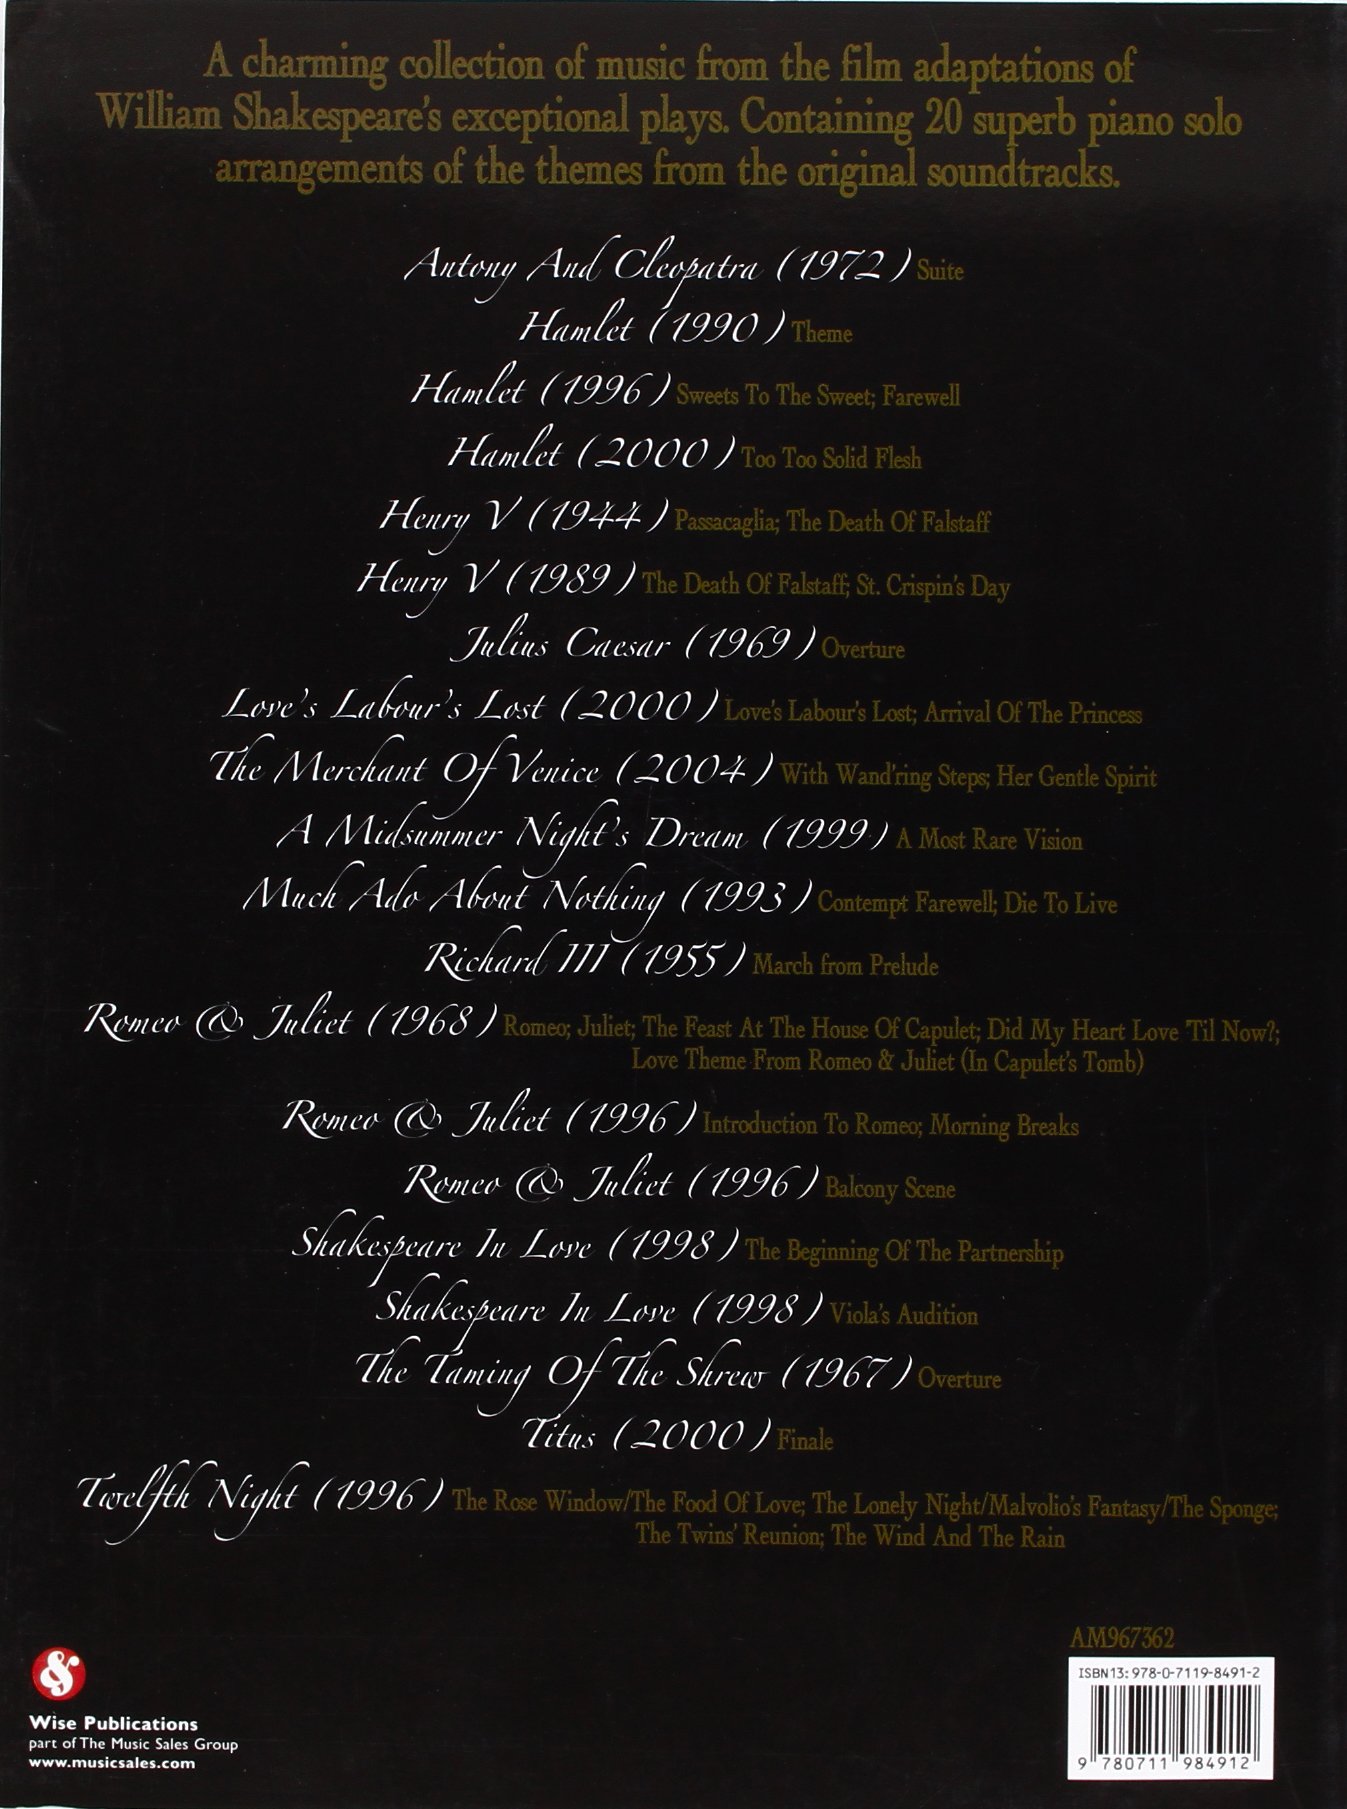 A charming collection of music from the film adaptations of
William Shakespeare's exceptional plays. Containing 20 superb piano solo
arrangements of the themes from the original soundtracks.
Antony And Cleopatra (1972) Suite
Hamlet (1990) Theme
Hamlet (1996) Sweets To The Sweet; Farewell
Hamlet (2000) Too Too Solid Flesh
Henry V (1944) Passacaglia; The Death Of Falstaff
Henry V (1989) The Death Of Falstaff; St. Crispin's Day
Julius Caesar (1969) Overture
Love's Labour's Lost (2000) Love's Labour's Lost; Arrival Of The Princess
The Merchant Of Venice (2004) With Wand'ring Steps; Her Gentle Spirit
A Midsummer Night's Dream (1999) A Most Rare Vision
Much Ado About Nothing (1993) Contempt Farewell; Die To Live
Richard III (1955) March from Prelude
Romeo & Juliet (1968) Romeo; Juliet; The Feast At The House Of Capulet; Did My Heart Love 'Til Now?;
Love Theme From Romeo & Juliet (In Capulet's Tomb)
Romeo & Juliet (1996) Introduction To Romeo; Morning Breaks
Romeo & Juliet (1996) Balcony Scene
Shakespeare In Love (1998) The Beginning Of The Partnership
Shakespeare In Love (1998) Viola's Audition
The Taming Of The Shrew (1967) Overture
Titus (2000) Finale
Twelfth Night (1996) The Rose Window/The Food Of Love; The Lonely Night/Malvolio's Fantasy/The Sponge;
The Twins' Reunion; The Wind And The Rain
AM967362
ISBN13: 978-0-7119-8491-2
9 780711 984912
&
Wise Publications
part of The Music Sales Group
www.musicsales.com